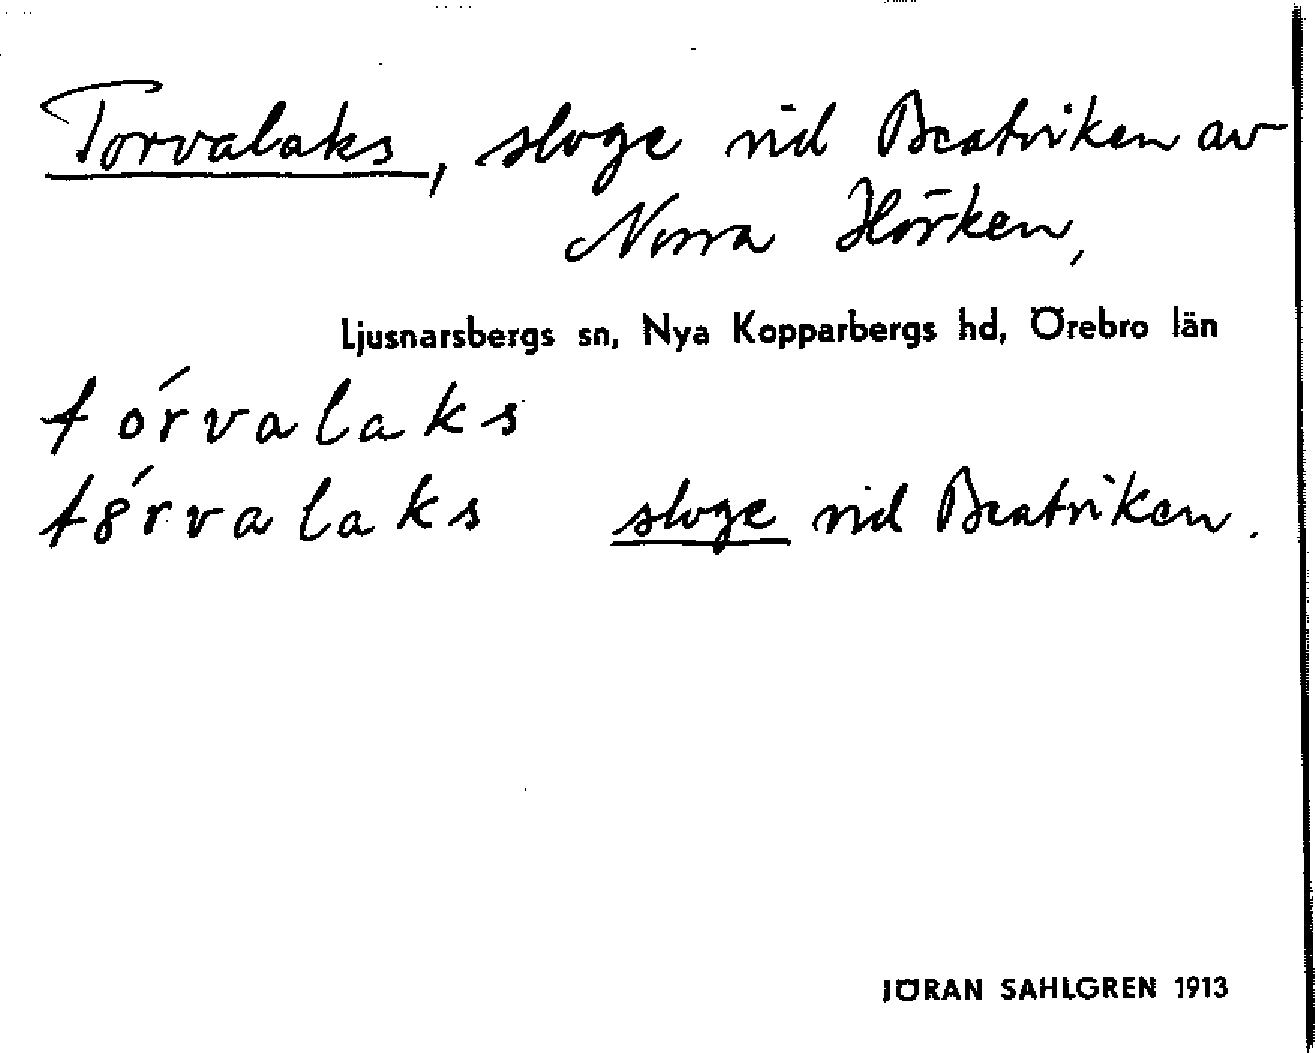 Torvalaks, sloge vid Beatriken av
Norra Hörken,
Ljusnarsbergs sn, Nya Kopparbergs hd, Örebro län
tórvalaks
t8́rvalaks sloge vid Beatriken.
JÖRAN SAHLGREN 1913